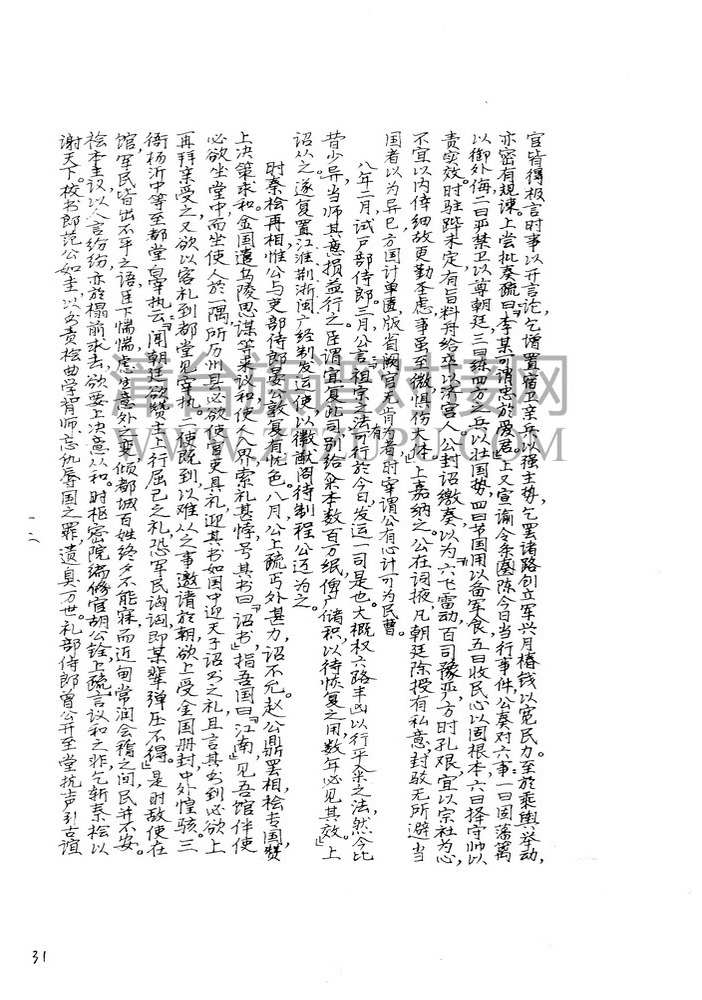 官皆得极言时事以开言论,乞增置宿卫亲兵以强主势,乞罢诸路创立军兴月椿钱以宽民力。至於乘舆举动,
亦密有规谏。上尝批奏疏曰:“李某可谓忠於爱君。”上又宣谕令条陈今日当行事件,公奏对六事:一曰固藩篱
以御外侮,二曰严禁卫以尊朝廷,三曰练四方之兵以壮国势,四曰节国用以备军食,五曰收民心以固根本,六曰择守帅以
责实效。时驻跸未定,有旨料舟给卒以济宫人,公封诏缴奏,以为“六飞雷动,百司豫严,方时孔艰,宜以宗社为心,
不宜以内倖细故更勤圣虑,事虽至微,惧伤大体。”上嘉纳之。公在词掖,凡朝廷除授有私意,封驳无所避,当
国者以为异己,方国计单匮,版省阙官,无肯为者,时宰谓公有心计可为民曹。
八年二月,试户部侍郎。三月,公言:“祖宗之法可行於今日,发运一司是也。大概权六路丰凶以行平籴之法,然今比
昔少异,当师其意损益行之。臣谓宜复此司,别给籴本数百万缗,俾广储积,以待恢复之用,数年必见其效。”上
诏从之,遂复置江淮荆浙闽广经制发运使,以徽猷阁待制程公迈为之。
时秦桧再相,惟公与吏部侍郎晏公敦复有忧色。八月,公上疏丐外甚力,诏不允。赵公鼎罢相,桧专国,赞
上决策求和。金国遣乌陵思谋等来议和,使人入界,索礼甚悖,号其书曰“诏书”,指吾国曰“江南”,见吾馆伴使
必欲坐堂中而坐使人於一隅,所历州县必欲使官吏具礼迎其书如国中迎天子诏书之礼,且言其书到必欲上
再拜亲受之,又欲以客礼到都堂见宰执。二使既到,以难从之事邀请於朝,欲上受金国册封,中外惶骇。三
衙杨沂中等至都堂白宰执云:“闻朝廷欲赞主上行屈己之礼,恐军民汹汹,即某辈弹压不得。”是时敌使在
馆,军民皆出不平之语,臣下惴惴,虑生意外之变,倾都城百姓终夕不能寐,而近甸常润会稽之间,民并不安。
桧本主议,以人言纷纷,亦於榻前求去,欲要上决意以和。时枢密院编修官胡公铨上疏,言议和之非,乞斩秦桧以
谢天下。校书郎范公如圭,以书责桧曲学背师、忘仇辱国之罪,遗臭万世。礼部侍郎曾公开至堂抗声引古谊
一六
31
清台族谱对接网
WWW.ZTZUPU.COM